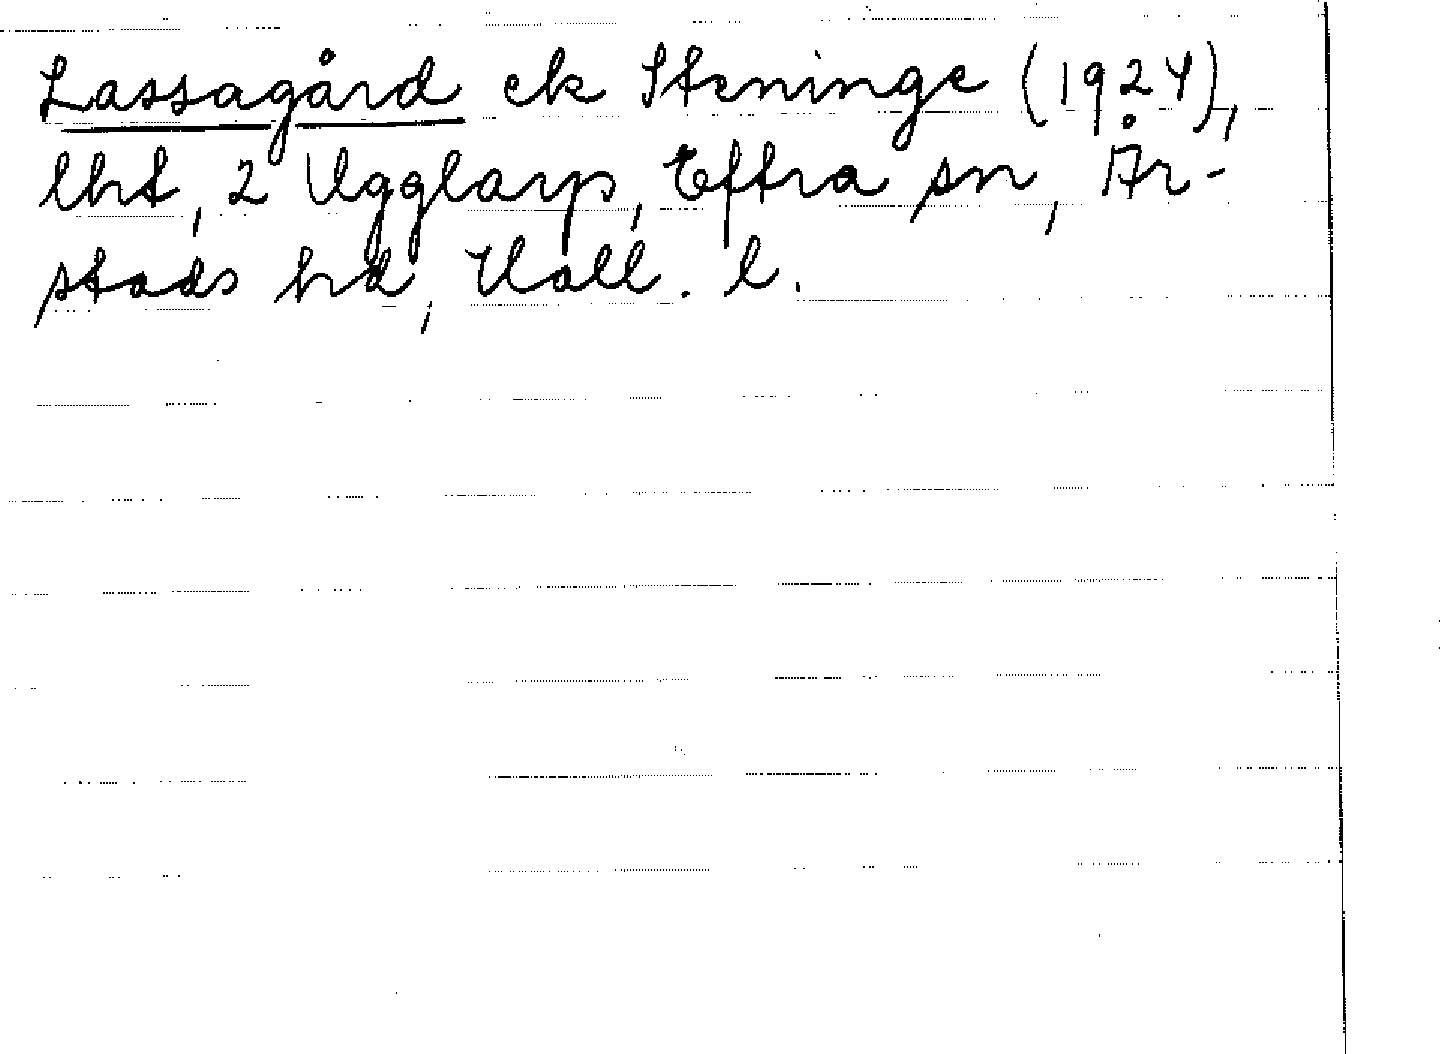 Lassagård ek Steninge (1924),
lht, 2 Ugglarp, Eftra sn, År-
stads hd, Hall. l.